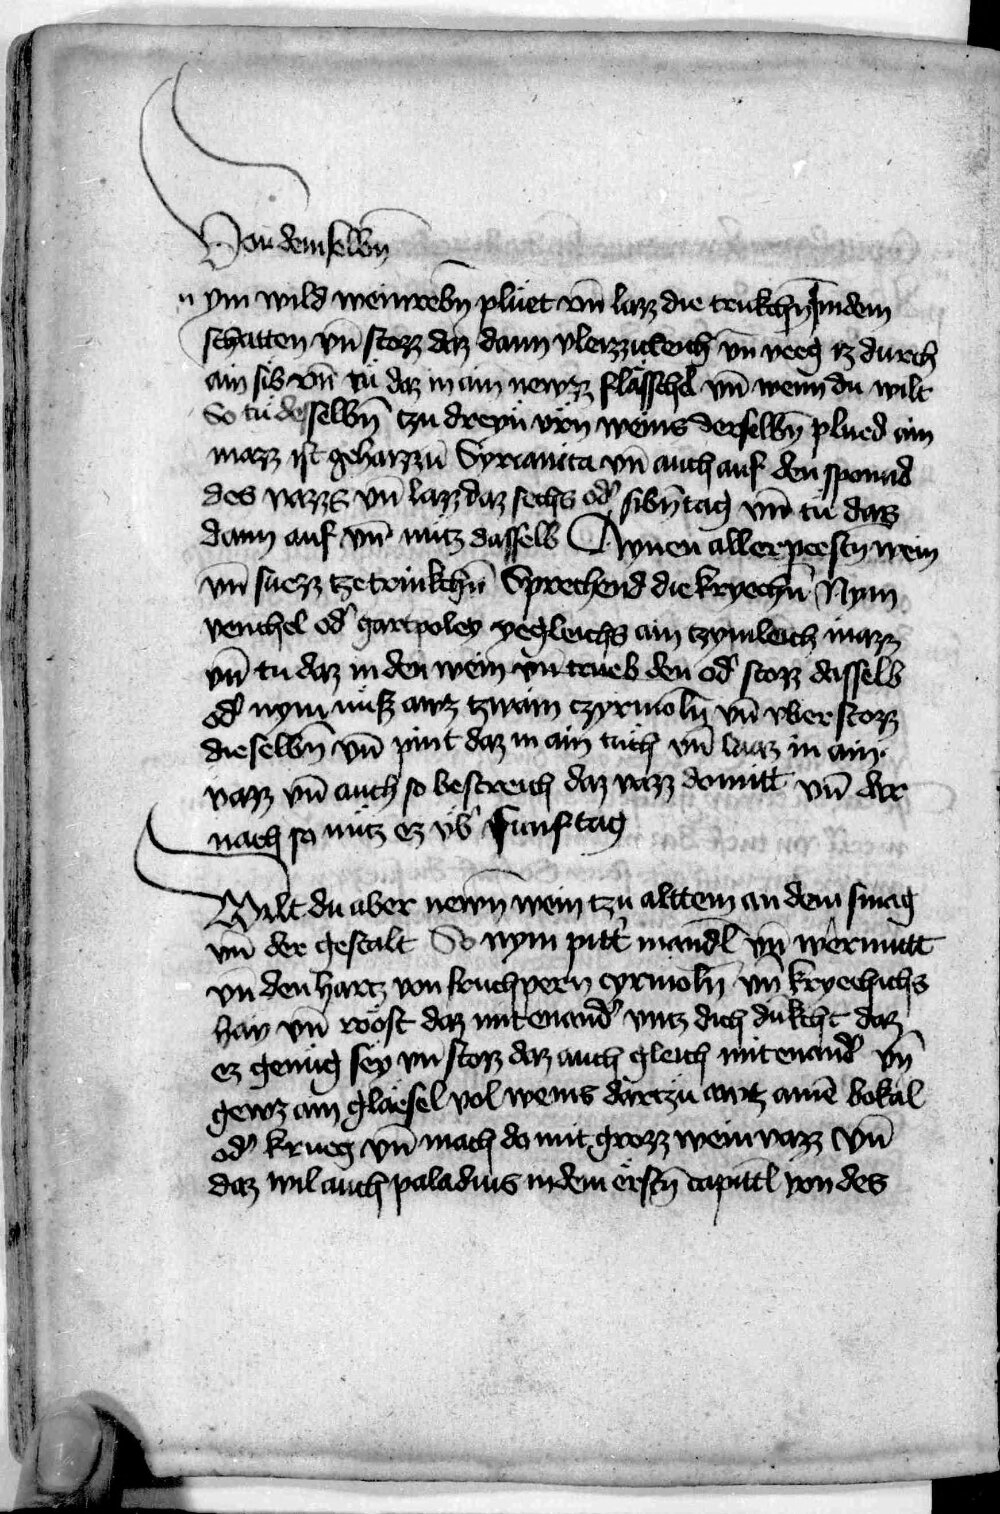 Von dem selbn̄
n ym wild weinrebn̄ plüet vn̄ lazz die trukchn̄ in dem
schatten vn̄ stozz daz dann vleizzicleich vn̄ reeg iz durch
ain sib vn̄ tů daz in ain newzz flässchel vn̄ wenn du wilt
So tů desselbn̄ tzu dreyn vrn̄ weins derselbn̄ plued ain
mazz ist gehaizzn̄ Syrranica vn̄ auch auf den sponnd
des vazzs vn̄ lazz daz sechs od' sibn̄ tag vn̄ tů daz
dann auf vn̄ nütz dasselb Aynen aller pesstn̄ wein
vn̄ suezz tze trinkchn̄ Sprechend die kryechn̄ Nym
venchel od' gartpoley yegleichs ain tzymleich mazz
vn̄ tu daz in den wein vn̄ trueb den od' stozz dasselb
od' nym nüsz awz tzwain czyrmoln̄ vn̄ vberstozz
dieselbn̄ vn̄ pint daz in ain tuch vn̄ laaz in ain
vazz vn̄ auch so bestreich daz vazz domitt vn̄ dar
nach so nütz ez vb' funf tag
Wilt du aber newn̄ wein tzu alttem an dem smag
vn̄ der gestalt So nym pitt' mandl vn̄ wermütt
vn̄ den hartz von fruchpern cyrmoln̄ vn̄ kryechichs
hay vn̄ röost daz mitenand' vntz dich dukcht daz
ez genůg sey vn̄ stoz daz auch gleich mitenand' vn̄
gewz ain gläesel vol weins dartzu awtz ainē bokal
od' krueg vn̄ mach do mit grozz wein vazz vn̄
daz wil auch paladius in dem erstn̄ capittl von des